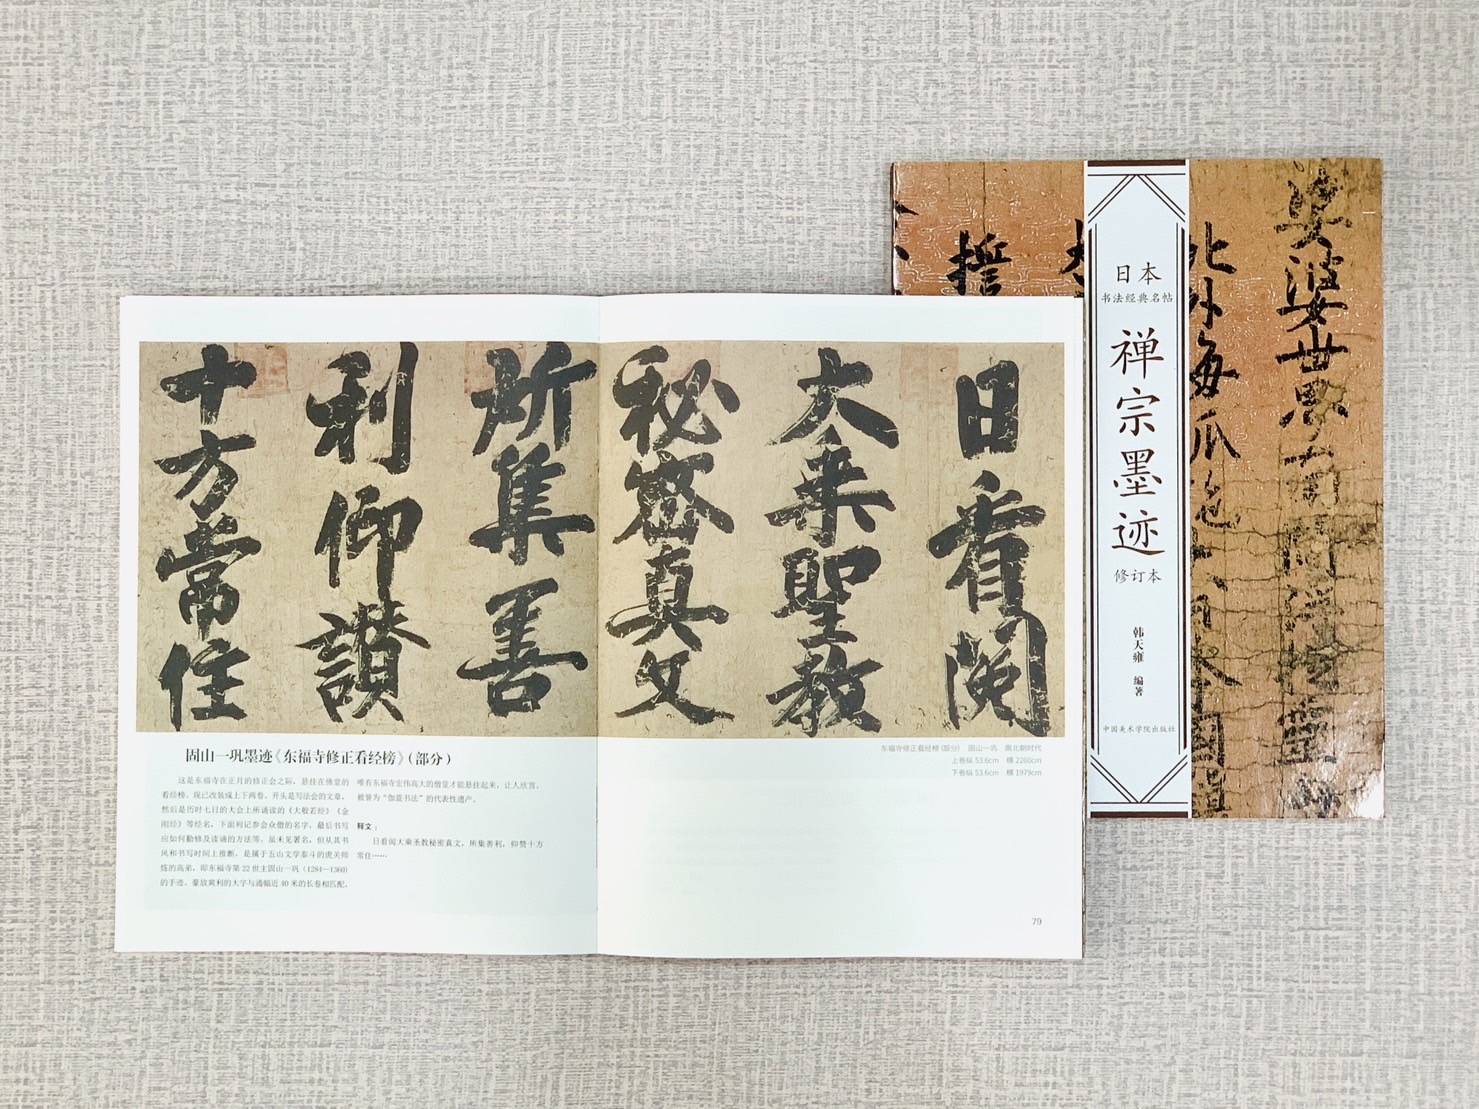 日看阅
大乗聖教
秘密真文
所集善
利仰讃
十方常住
固山一巩墨迹《东福寺修正看经榜》（部分）
这是东福寺在正月的修正会之际，悬挂在佛堂的
看经榜。现已改装成上下两卷。开头是写法会的文章，
然后是历时七日的大会上所诵读的《大般若经》《金
刚经》等经名，下面列记参会众僧的名字，最后书写
应如何勤修及读诵的方法等。虽未见署名，但从其书
风和书写时间上推断，是属于五山文学泰斗的虎关师
炼的高弟，即东福寺第22世主固山一巩（1284—1360）
的手迹。豪放爽利的大字与通幅近40米的长卷相匹配，
唯有东福寺宏伟高大的僧堂才能悬挂起来，让人欣赏。
被誉为“伽蓝书法”的代表性遗产。
释文：
日看阅大乘圣教秘密真文，所集善利，仰赞十方
常住……
东福寺修正看经榜（部分） 固山一巩 南北朝时代
上卷纵 53.6cm 横 2260cm
下卷纵 53.6cm 横 1979cm
79
日本
书法经典名帖
禅宗墨迹
修订本
韩天雍 编著
中国美术学院出版社
娑婆世界
北外海
誓